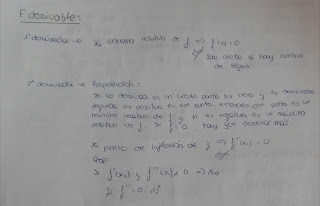 F derivable:
1ª derivada → x₀ extremo relativo de f ⇒ f'(x₀)=0
Sólo cierto si hay cambio
de signo
2ª derivada → Proposición:
Si la derivada en un punto es cero y la derivada
segunda es positiva en ese punto, entonces ese punto es un
mínimo relativo de f y si es negativa es un máximo
relativo de f. Si f''=0, hay que derivar más
x₀ punto de inflexión de f ⇒ f''(x₀) = 0
Prop:
Si f''(x₀) y f'''(x₀) ≠ 0 ⇒ x₀
Si f'''=0